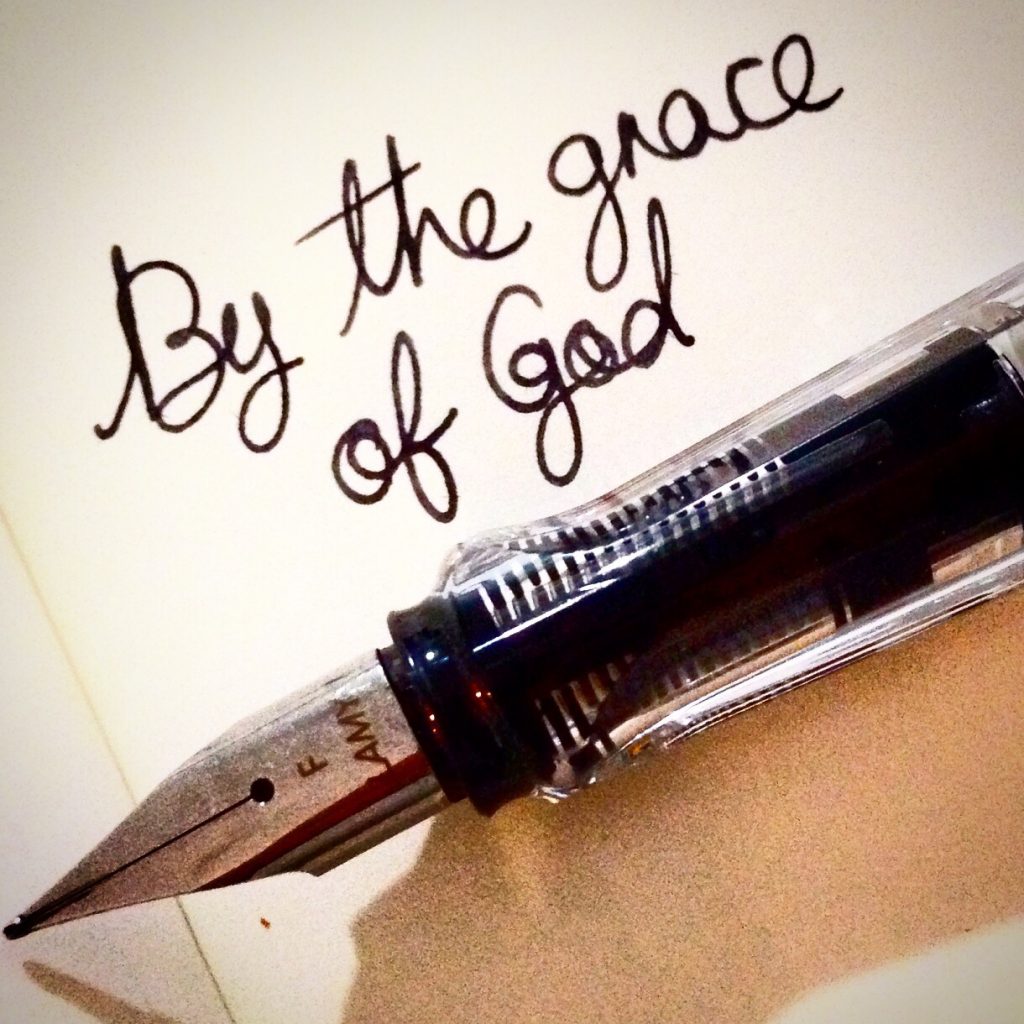 By the grace
of God
F
LAMY